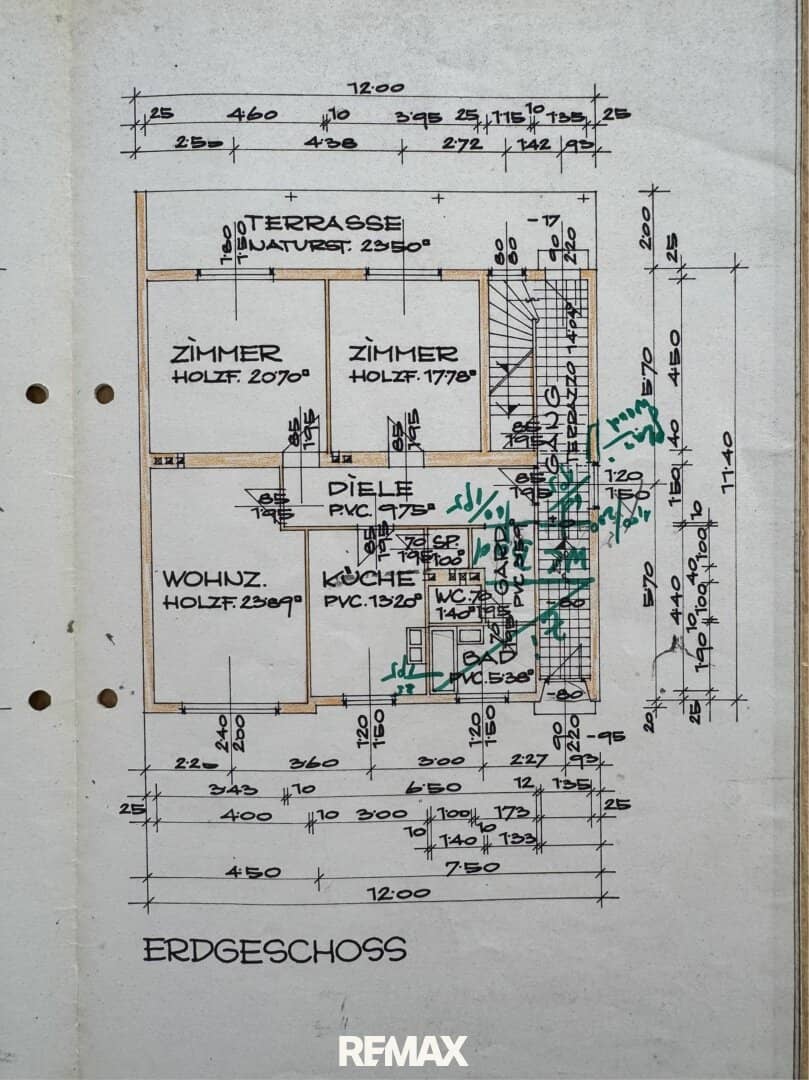 12·00
25 4·60 10 3·95 25 1·15 10 1·35 25
2·55 4·38 2·72 1·42 93
TERRASSE
NATURST. 23·50
1·80
1·50
80
80
-17
90
2·20
200
25
ZIMMER
HOLZF. 20·70
ZIMMER
HOLZF. 17·78
GANG
TERRAZZO 14·04
5·70
4·50
40
1·50
11·40
85
1·95
85
1·95
85
1·95
85
1·95
1·20
1·50
DIELE
PVC. 9·75
85
1·95
85
1·95
70
1·95
SP.
1·00
GARD.
PVC
WOHNZ.
HOLZF. 23·89
KÜCHE
PVC. 13·20
WC.
1·40
70
1·95
70
BAD
PVC. 5·38
-80
-80
5·70
4·40
10
1·00
40
1·00
10
1·90
20
25
2·40
2·50
1·20
1·50
1·20
1·50
90
2·20
-95
2·25 3·60 3·00 2·27 93
3·43 10 6·50 12 1·35
25 4·00 10 3·00 1·00 1·73 25
10 1·40 10 1·33
4·50 7·50
12·00
ERDGESCHOSS
REMAX